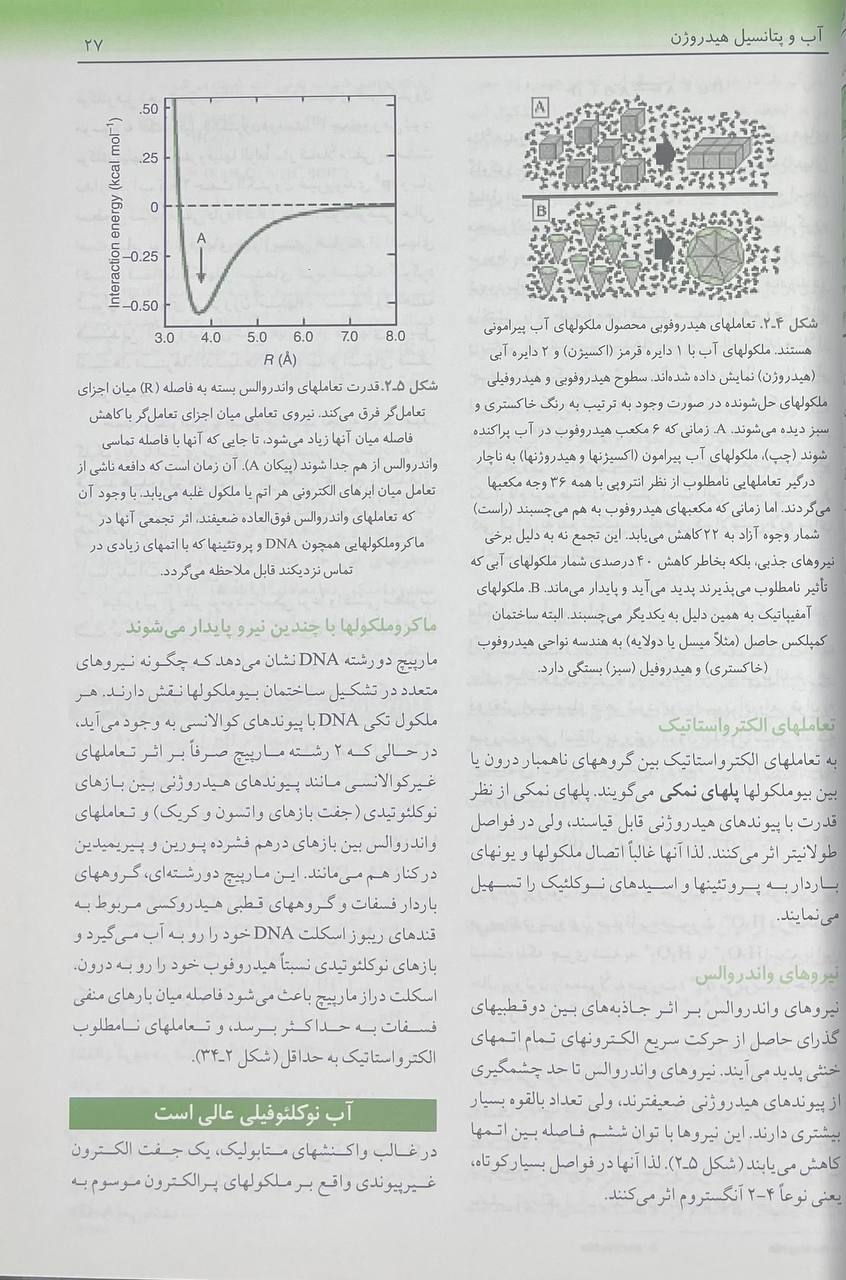 آب و پتانسیل هیدروژن
۲۷
A
B
شکل ۴ـ۲. تعاملهای هیدروفوبی محصول ملکولهای آب پیرامونی
هستند. ملکولهای آب با ۱ دایره قرمز (اکسیژن) و ۲ دایره آبی
(هیدروژن) نمایش داده شده‌اند. سطوح هیدروفوبی و هیدروفیلی
ملکولهای حل‌شونده در صورت وجود به ترتیب به رنگ خاکستری و
سبز دیده می‌شوند. A. زمانی که ۶ مکعب هیدروفوب در آب پراکنده
شوند (چپ)، ملکولهای آب پیرامون (اکسیژنها و هیدروژنها) به ناچار
درگیر تعاملهایی نامطلوب از نظر انتروپی با همه ۳۶ وجه مکعبها
می‌گردند. اما زمانی که مکعبهای هیدروفوب به هم می‌چسبند (راست)
شمار وجوه آزاد به ۲۲ کاهش می‌یابد. این تجمع نه به دلیل برخی
نیروهای جذبی، بلکه بخاطر کاهش ۴۰ درصدی شمار ملکولهای آبی که
تأثیر نامطلوب می‌پذیرند پدید می‌آید و پایدار می‌ماند. B. ملکولهای
آمفیپاتیک به همین دلیل به یکدیگر می‌چسبند. البته ساختمان
کمپلکس حاصل (مثلاً میسل یا دولایه) به هندسه نواحی هیدروفوب
(خاکستری) و هیدروفیل (سبز) بستگی دارد.
تعاملهای الکترواستاتیک
به تعاملهای الکترواستاتیک بین گروههای ناهمبار درون یا
بین بیوملکولها پلهای نمکی می‌گویند. پلهای نمکی از نظر
قدرت با پیوندهای هیدروژنی قابل قیاسند، ولی در فواصل
طولانیتر اثر می‌کنند. لذا آنها غالباً اتصال ملکولها و یونهای
باردار به پروتئینها و اسیدهای نوکلئیک را تسهیل
می‌نمایند.
نیروهای واندروالس
نیروهای واندروالس بر اثر جاذبه‌های بین دوقطبیهای
گذرای حاصل از حرکت سریع الکترونهای تمام اتمهای
خنثی پدید می‌آیند. نیروهای واندروالس تا حد چشمگیری
از پیوندهای هیدروژنی ضعیفترند، ولی تعداد بالقوه بسیار
بیشتری دارند. این نیروها با توان ششم فاصله بین اتمها
کاهش می‌یابند (شکل ۵ـ۲). لذا آنها در فواصل بسیار کوتاه،
یعنی نوعاً ۴-۲ آنگستروم اثر می‌کنند.
Interaction energy (kcal mol⁻¹)
.50
.25
0
−0.25
−0.50
A
3.0 4.0 5.0 6.0 7.0 8.0
R (Å)
شکل ۵ـ۲. قدرت تعاملهای واندروالس بسته به فاصله (R) میان اجزای
تعامل‌گر فرق می‌کند. نیروی تعاملی میان اجزای تعامل‌گر با کاهش
فاصله میان آنها زیاد می‌شود، تا جایی که آنها با فاصله تماسی
واندروالس از هم جدا شوند (پیکان A). آن زمان است که دافعه ناشی از
تعامل میان ابرهای الکترونی هر اتم یا ملکول غلبه می‌یابد. با وجود آن
که تعاملهای واندروالس فوق‌العاده ضعیفند، اثر تجمعی آنها در
ماکروملکولهایی همچون DNA و پروتئینها که با اتمهای زیادی در
تماس نزدیکند قابل ملاحظه می‌گردد.
ماکروملکولها با چندین نیرو پایدار می‌شوند
مارپیچ دورشته DNA نشان می‌دهد که چگونه نیروهای
متعدد در تشکیل ساختمان بیوملکولها نقش دارند. هر
ملکول تکی DNA با پیوندهای کوالانسی به وجود می‌آید،
در حالی که ۲ رشته مارپیچ صرفاً بر اثر تعاملهای
غیرکوالانسی مانند پیوندهای هیدروژنی بین بازهای
نوکلئوتیدی (جفت بازهای واتسون و کریک) و تعاملهای
واندروالس بین بازهای درهم فشرده پورین و پیریمیدین
در کنار هم می‌مانند. این مارپیچ دورشته‌ای، گروههای
باردار فسفات و گروههای قطبی هیدروکسی مربوط به
قندهای ریبوز اسکلت DNA خود را رو به آب می‌گیرد و
بازهای نوکلئوتیدی نسبتاً هیدروفوب خود را رو به درون.
اسکلت دراز مارپیچ باعث می‌شود فاصله میان بارهای منفی
فسفات به حداکثر برسد، و تعاملهای نامطلوب
الکترواستاتیک به حداقل (شکل ۲ـ۳۴).
آب نوکلئوفیلی عالی است
در غالب واکنشهای متابولیک، یک جفت الکترون
غیرپیوندی واقع بر ملکولهای پرالکترون موسوم به